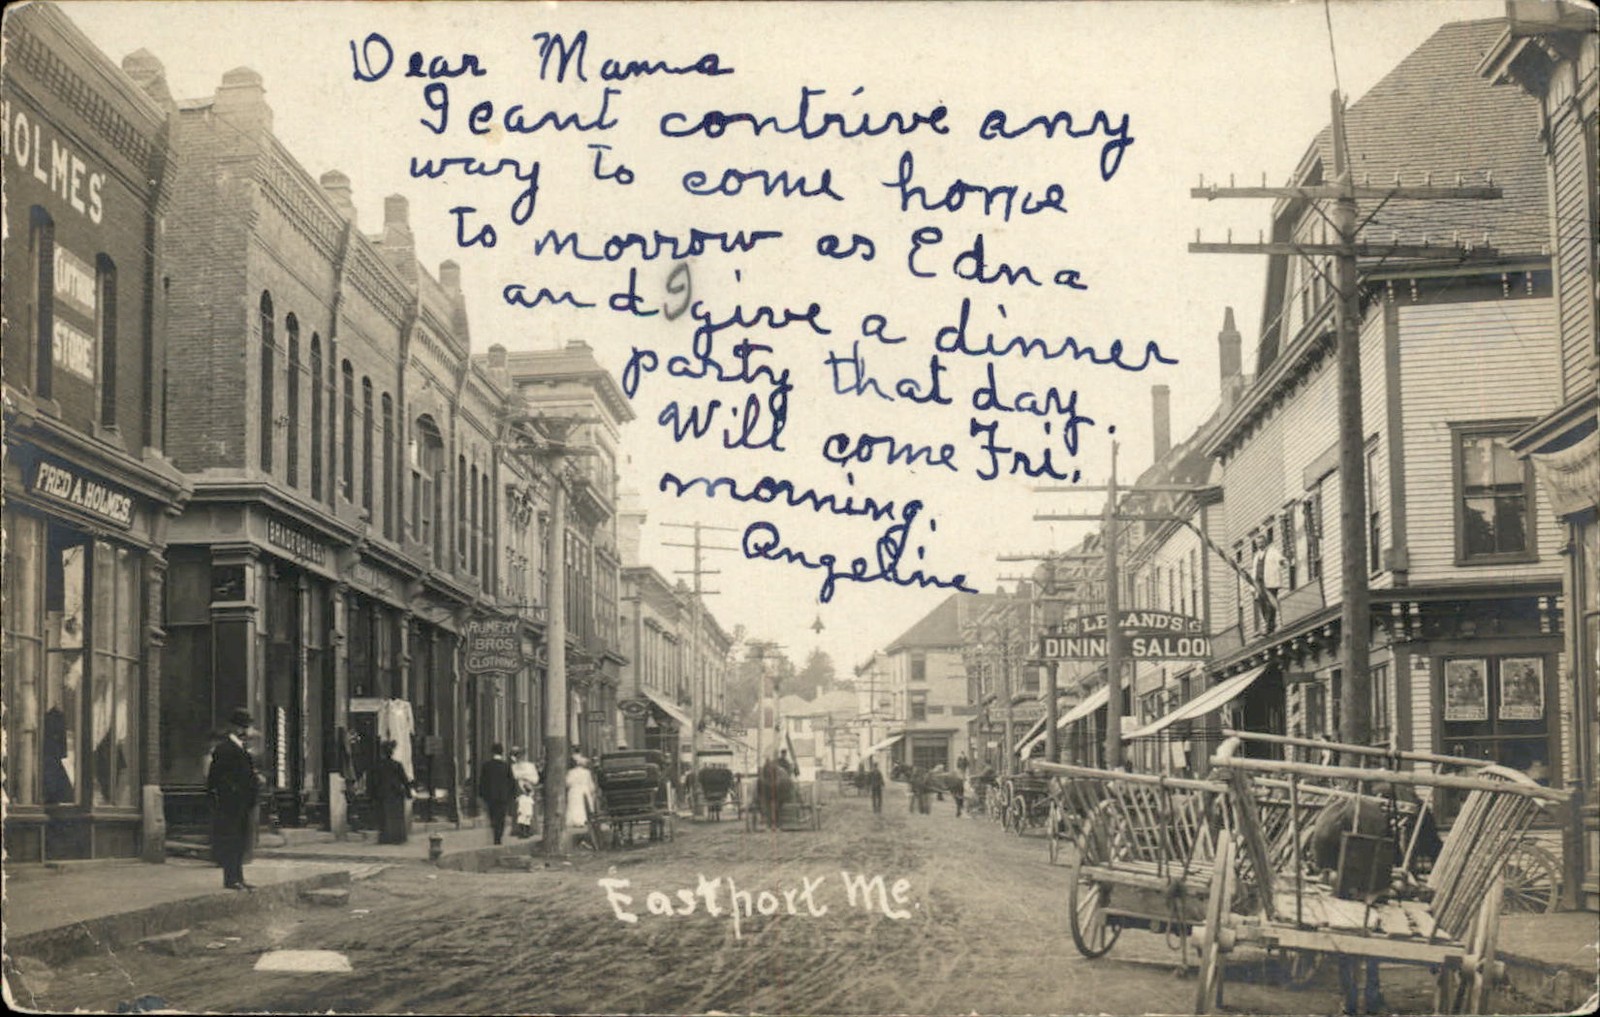 Dear Mama
I cant contrive any
way to come home
to morrow as Edna
and I give a dinner
party that day.
Will come Fri.
morning.
Angeline
HOLMES'
CLOTHING
STORE
FRED A. HOLMES.
RUMERY
BROS.
CLOTHING
LELAND'S
DINING SALOON
Eastport Me.